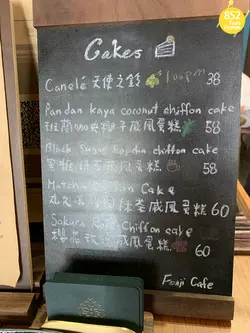 852
Cakes
Canelé 天使之鈴 10 a.m 38
Pandan kaya coconut chiffon cake
班蘭咖央椰子戚風蛋糕 58
Black Sugar chiffon cake
黑糖 戚風蛋糕 58
Matcha Chiffon Cake
抹茶戚風蛋糕 60
Sakura Rose Chiffon cake
櫻 戚風蛋糕 60
Fenji Cafe